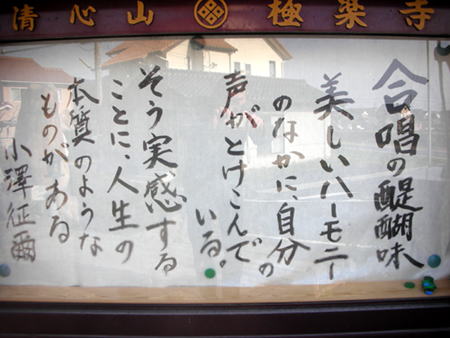 清心山 極楽寺
合唱の醍醐味
美しいハーモニー
のなかに、自分の
声がとけこんで
いる。
そう実感する
ことに、人生の
本質のような
ものがある
小澤征爾